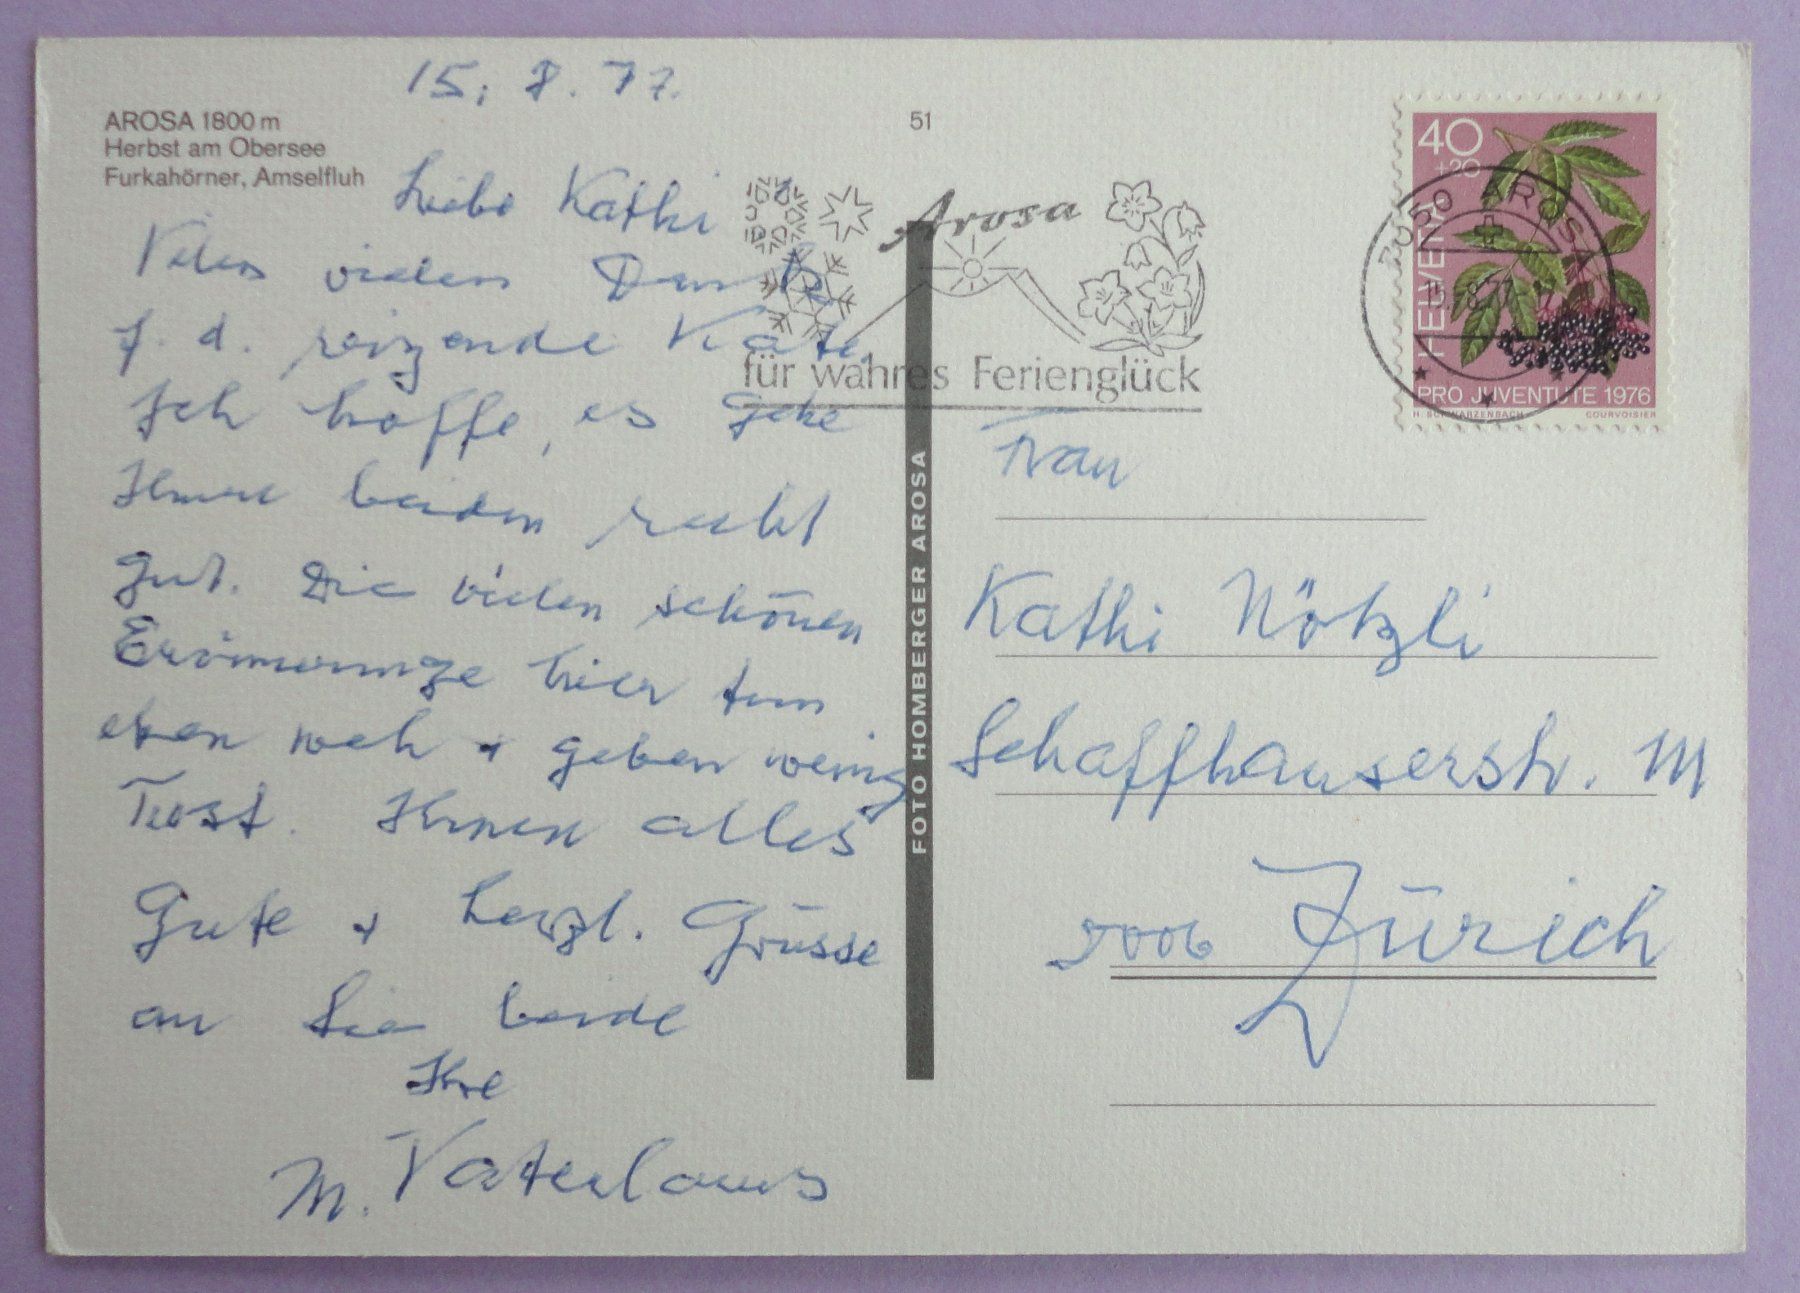 15. 8. 77.
AROSA 1800 m
Herbst am Obersee
Furkahörner, Amselfluh
51
Liebe Kathi
Vielen vielen Dank
f. d. reizende Karte.
Ich hoffe, es gehe
Ihnen beiden recht
gut. Die vielen schönen
Erinnerungen hier tun
eben weh + geben wenig
Trost. Ihnen alles
Gute + herzl. Grüsse
an Sie beide
Ihre
M. Vaterlaus
FOTO HOMBERGER AROSA
Arosa
für wahres Ferienglück
7050 AROSA
15.-8.77
40
+20
HELVETIA
PRO JUVENTUTE 1976
H. SCHWARZENBACH COURVOISIER
Frau
Kathi Nötzli
Schaffhauserstr.
8006 Zürich